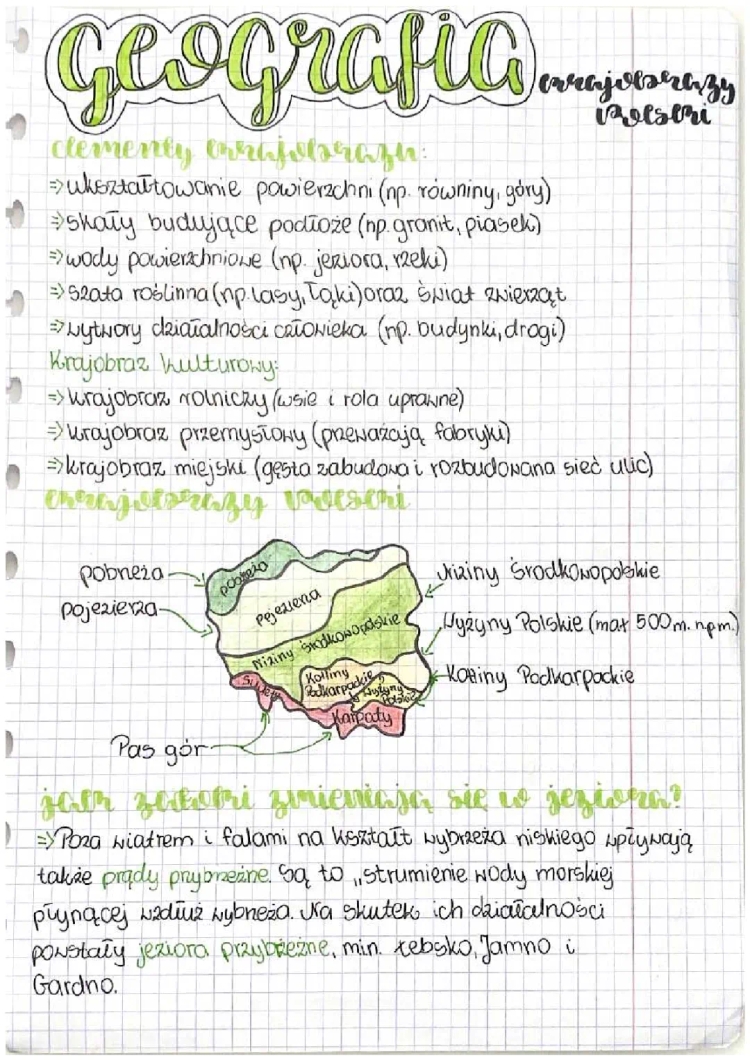 Geografia
krajobrazy
Polski
elementy krajobrazu:
⇒ukształtowanie powierzchni (np. równiny, góry)
⇒skały budujące podłoże (np. granit, piasek)
⇒wody powierzchniowe (np. jeziora, rzeki)
⇒szata roślinna (np. lasy, łąki) oraz świat zwierząt
⇒wytwory działalności człowieka (np. budynki, drogi)
Krajobraz kulturowy:
⇒krajobraz rolniczy (wsie i rola uprawne)
⇒krajobraz przemysłowy (przeważają fabryki)
⇒krajobraz miejski (gęsta zabudowa i rozbudowana sieć ulic)
krajobrazy Polski
pobrzeża
pojezierza
Pas gór
pobrzeża
Pojezierza
Niziny środkowopolskie
Sudety
Kotliny
Podkarpackie
Wyżyny
Polskie
Karpaty
Niziny Środkowopolskie
Wyżyny Polskie (max 500 m. npm.)
Kotliny Podkarpackie
jak zatoki zmieniają się w jeziora?
⇒Poza wiatrem i falami na kształt wybrzeża niskiego wpływają
także prądy przybrzeżne. Są to „strumienie wody morskiej
płynącej wzdłuż wybrzeża. Na skutek ich działalności
powstały jeziora przybrzeżne, min. Łebsko, Jamno i
Gardno.